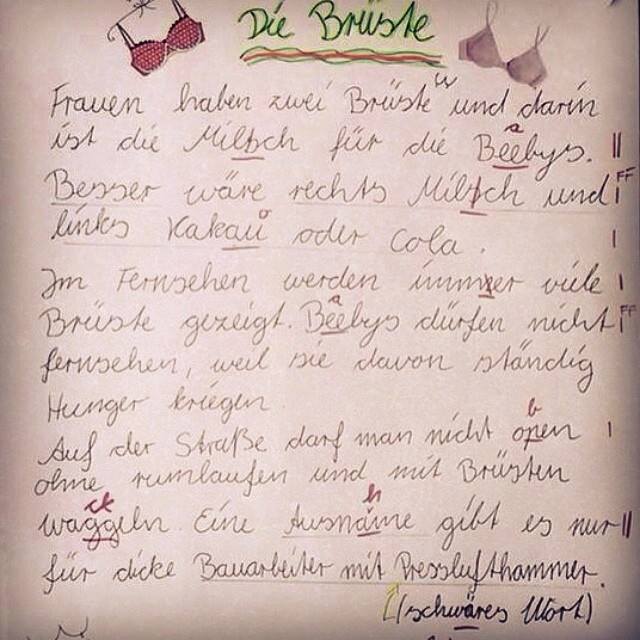 Die Brüste
Frauen haben zwei Brüste und darin
ist die Miltsch für die Beebys.
Besser wäre rechts Miltsch und
links Kakau oder Cola.
Im Fernsehen werden immer viele
Brüste gezeigt. Beebys dürfen nicht
fernsehen, weil sie davon ständig
Hunger kriegen.
Auf der Straße darf man nicht open
ohne rumlaufen und mit Brüsten
waggeln. Eine Ausname gibt es nur
für dicke Bauarbeiter mit Presslufthammer.
(schwäres Wort)